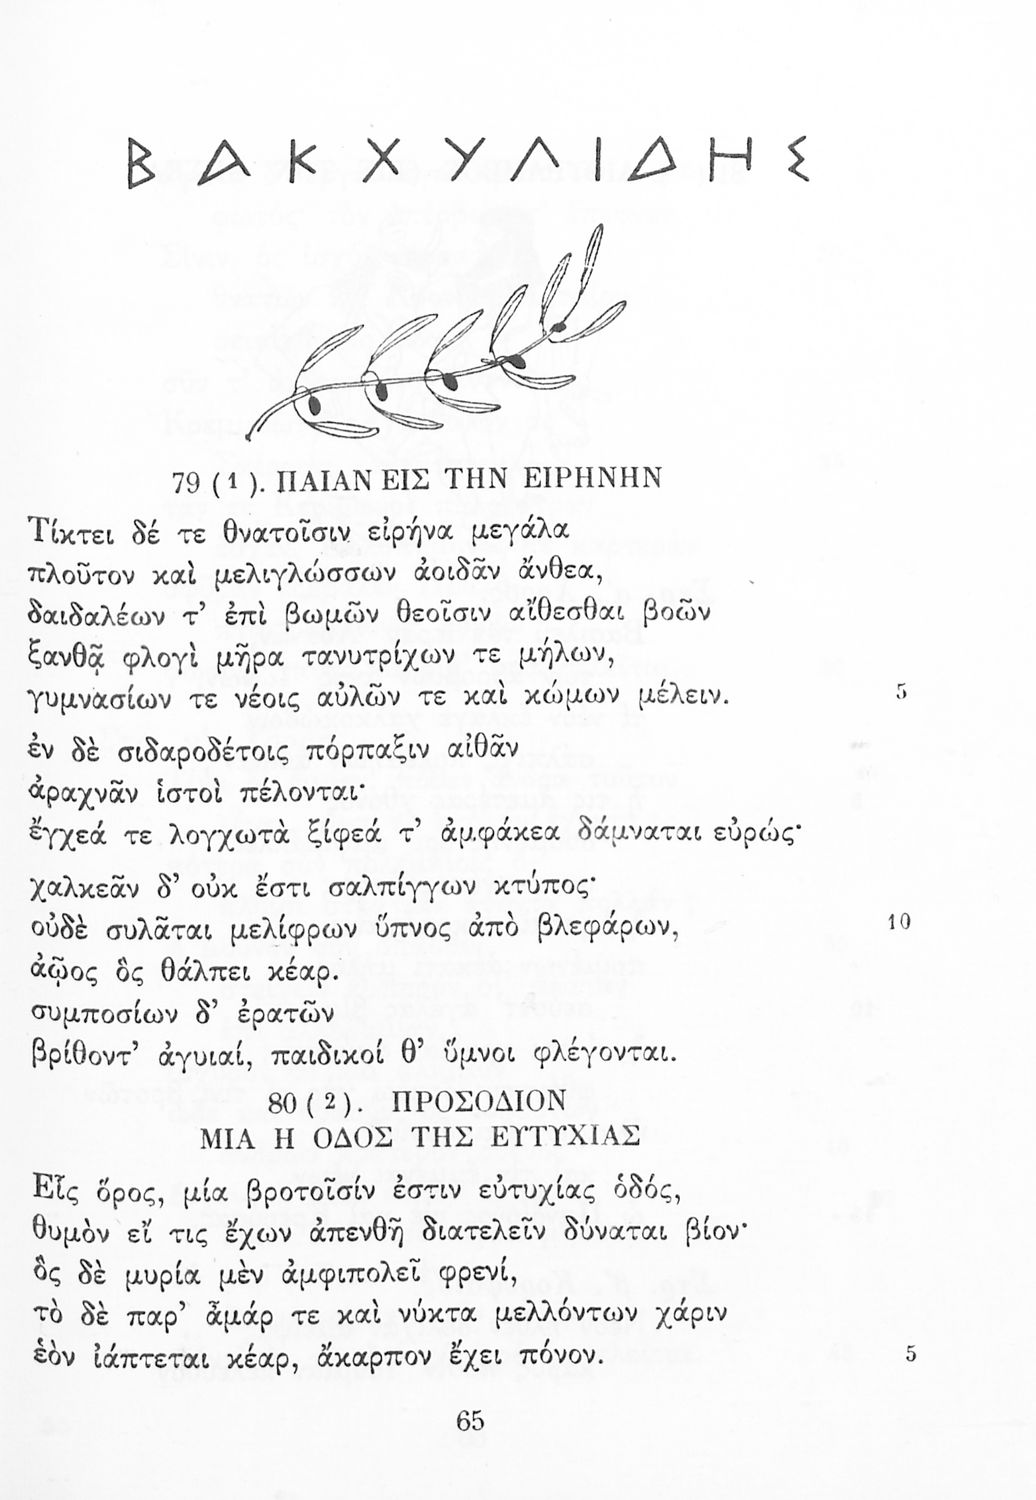 ΒΑΚΧΥΛΙΔΗΣ
79 (1). ΠΑΙΑΝ ΕΙΣ ΤΗΝ ΕΙΡΗΝΗΝ
Τίκτει δέ τε θνατοῖσιν εἰρήνα μεγάλα
πλοῦτον καὶ μελιγλώσσων ἀοιδᾶν ἄνθεα,
δαιδαλέων τ’ ἐπὶ βωμῶν θεοῖσιν αἴθεσθαι βοῶν
ξανθᾷ φλογὶ μῆρα τανυτρίχων τε μήλων,
γυμνασίων τε νέοις αὐλῶν τε καὶ κώμων μέλειν. 5
ἐν δὲ σιδαροδέτοις πόρπαξιν αἰθᾶν
ἀραχνᾶν ἱστοὶ πέλονται·
ἔγχεά τε λογχωτὰ ξίφεά τ’ ἀμφάκεα δάμναται εὐρώς·
χαλκεᾶν δ’ οὐκ ἔστι σαλπίγγων κτύπος·
οὐδὲ συλᾶται μελίφρων ὕπνος ἀπὸ βλεφάρων, 10
ἀῷος ὃς θάλπει κέαρ.
συμποσίων δ’ ἐρατῶν
βρίθοντ’ ἀγυιαί, παιδικοί θ’ ὕμνοι φλέγονται.
80 (2). ΠΡΟΣΟΔΙΟΝ
ΜΙΑ Η ΟΔΟΣ ΤΗΣ ΕΥΤΥΧΙΑΣ
Εἷς ὅρος, μία βροτοῖσίν ἐστιν εὐτυχίας ὁδός,
θυμὸν εἴ τις ἔχων ἀπενθῆ διατελεῖν δύναται βίον·
ὃς δὲ μυρία μὲν ἀμφιπολεῖ φρενί,
τὸ δὲ παρ’ ἆμάρ τε καὶ νύκτα μελλόντων χάριν
ἑὸν ἰάπτεται κέαρ, ἄκαρπον ἔχει πόνον. 5
65